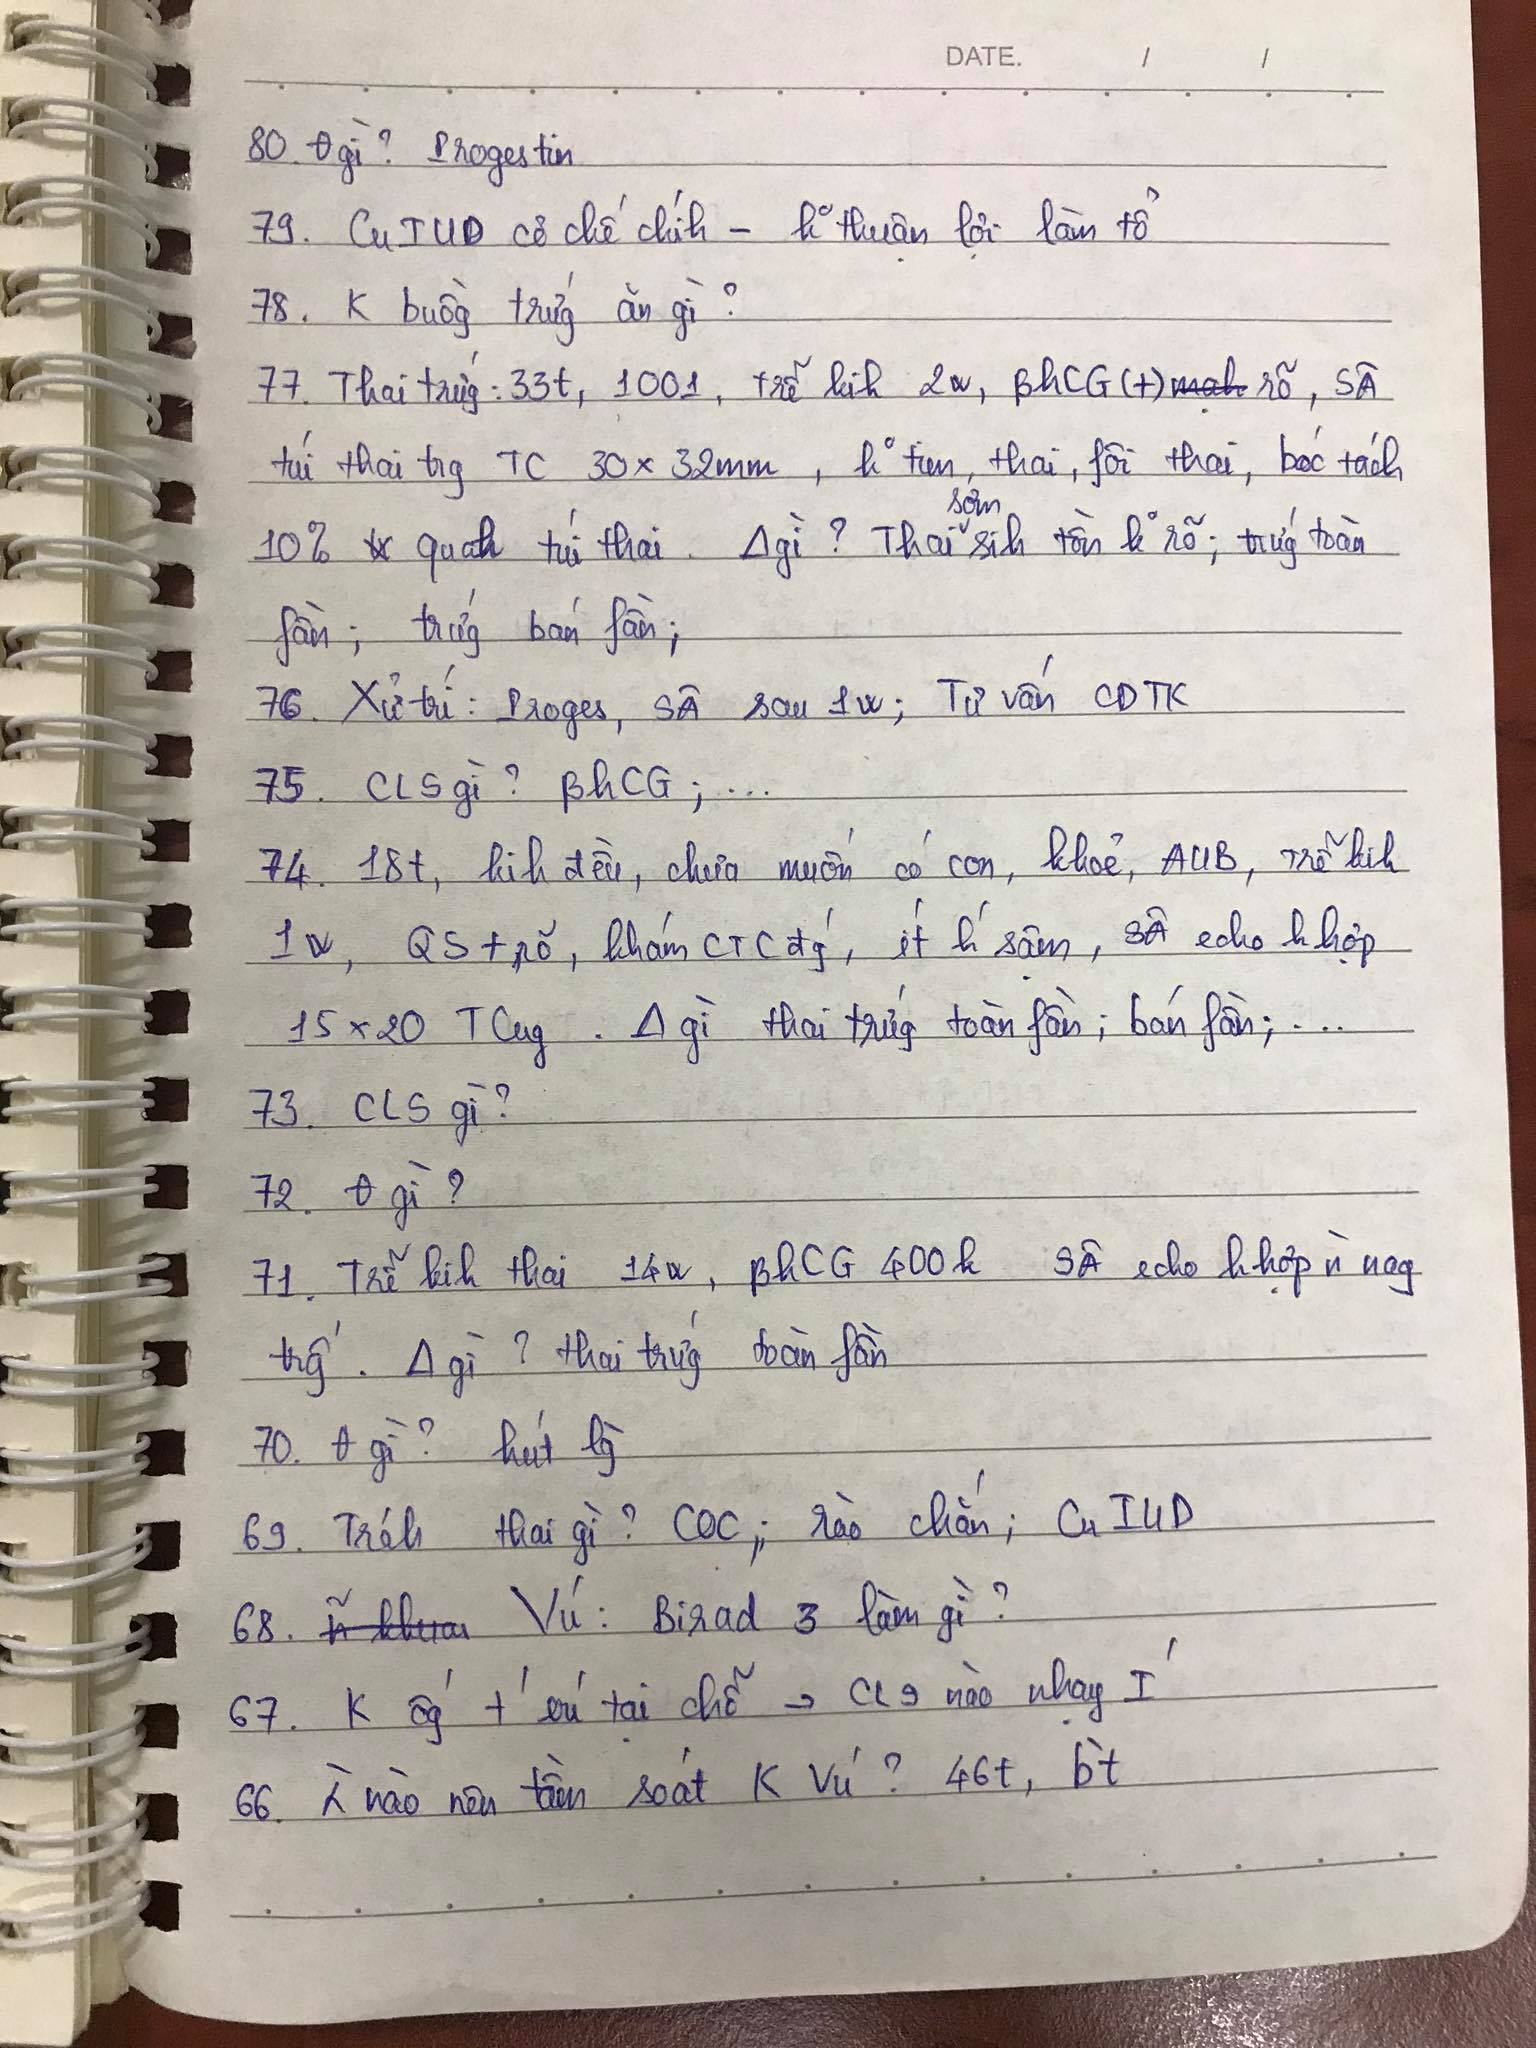 DATE. / /
80. θ gì? Progestin
79. Cu IUD cơ chế chính – k° thuận lợi làm tổ
78. K buồg trứg ăn gì?
77. Thai trứg: 33t, 1001, trễ kih 2w, βhCG (+) rõ, SÂ
túi thai trg TC 30 × 32mm, k° tim thai, fôi thai, bóc tách
10% quah túi thai. Δ gì? Thai sớm sih tồn k° rõ; trứg toàn
fần; trứg bán fần;
76. Xử trí: Proges, SÂ sau 1w; Tư vấn CDTK
75. CLS gì? βhCG; ...
74. 18t, kih đều, chưa muốn có con, khoẻ, AUB, trễ kih
1w, QS + rõ, khám CTC đg, ít h sậm, SÂ echo k hợp
15 × 20 TCug. Δ gì thai trứg toàn fần; bán fần; ...
73. CLS gì?
72. θ gì?
71. Trễ kih thai 14w, βhCG 400k SÂ echo k hợp ǹ nag
trg. Δ gì? thai trứg toàn fần
70. θ gì? hút
69. Tráh thai gì? COC; rào chắn; Cu IUD
68. Vú: Birad 3 làm gì?
67. K tại chỗ → CLS nào nhạy I
66. nào nên tầm soát K Vú? 46t, bt